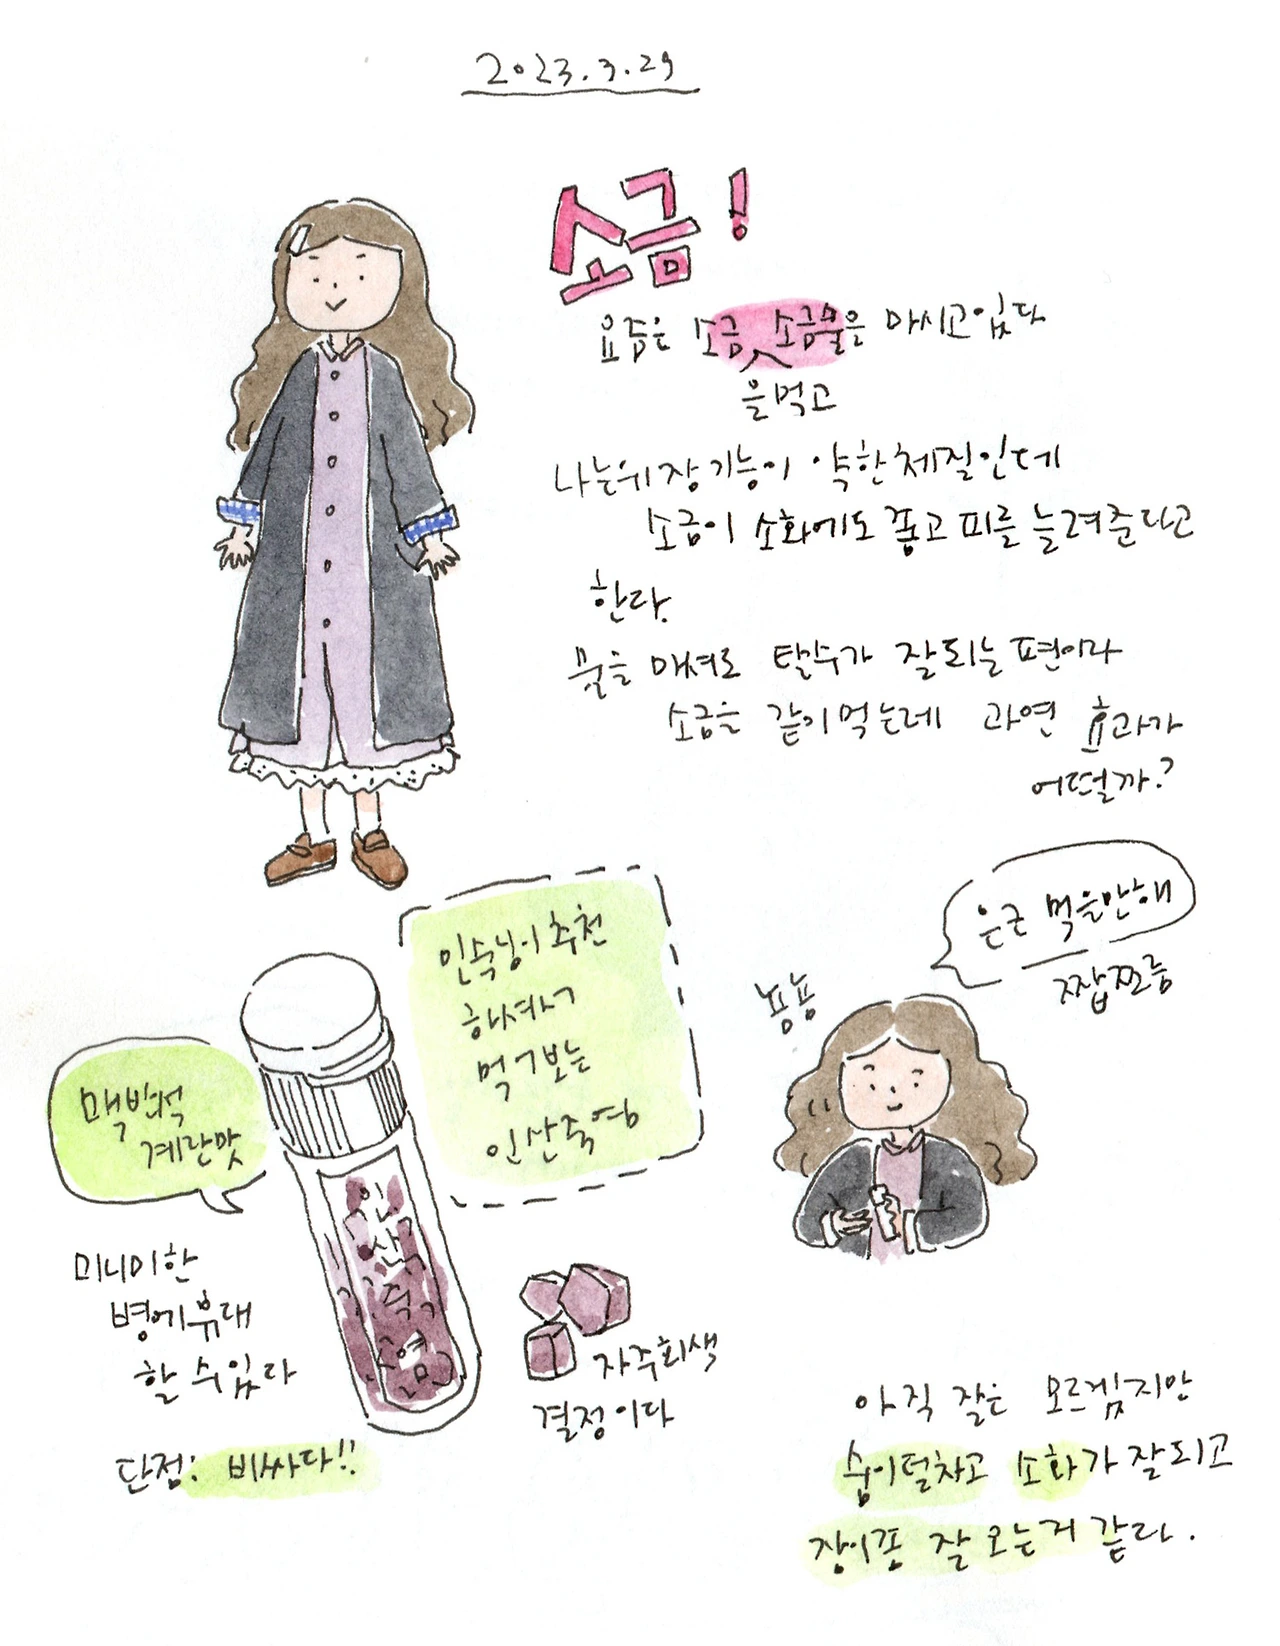 2023.3.29
소금!
요즘은 소금 소금물을 마시고있다
을먹고
나는위장기능이 약한체질인데
소금이 소화에도 좋고 피를 늘려준다고
한다.
물을 마셔도 탈수가 잘되는 편이라
소금을 같이먹는데 과연 효과가
어떨까?
은근 먹을만해
짭쪼름
뇽뇽
인숙님이추천
하셔서
먹어보는
인산죽염
맥반석
계란맛
인산죽염
미니미한
병에휴대
할 수있다
단점: 비싸다!!
자주회색
결정이다
아직 잘은 모르겠지만
숨이덜차고 소화가 잘되고
잠이좀 잘 오는거 같다.